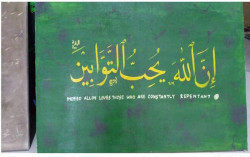 إِنَّ اللَّهَ يُحِبُّ التَّوَّابِينَ
ALLAH LOVES THOSE WHO ARE CONSTANTLY REPENTANT